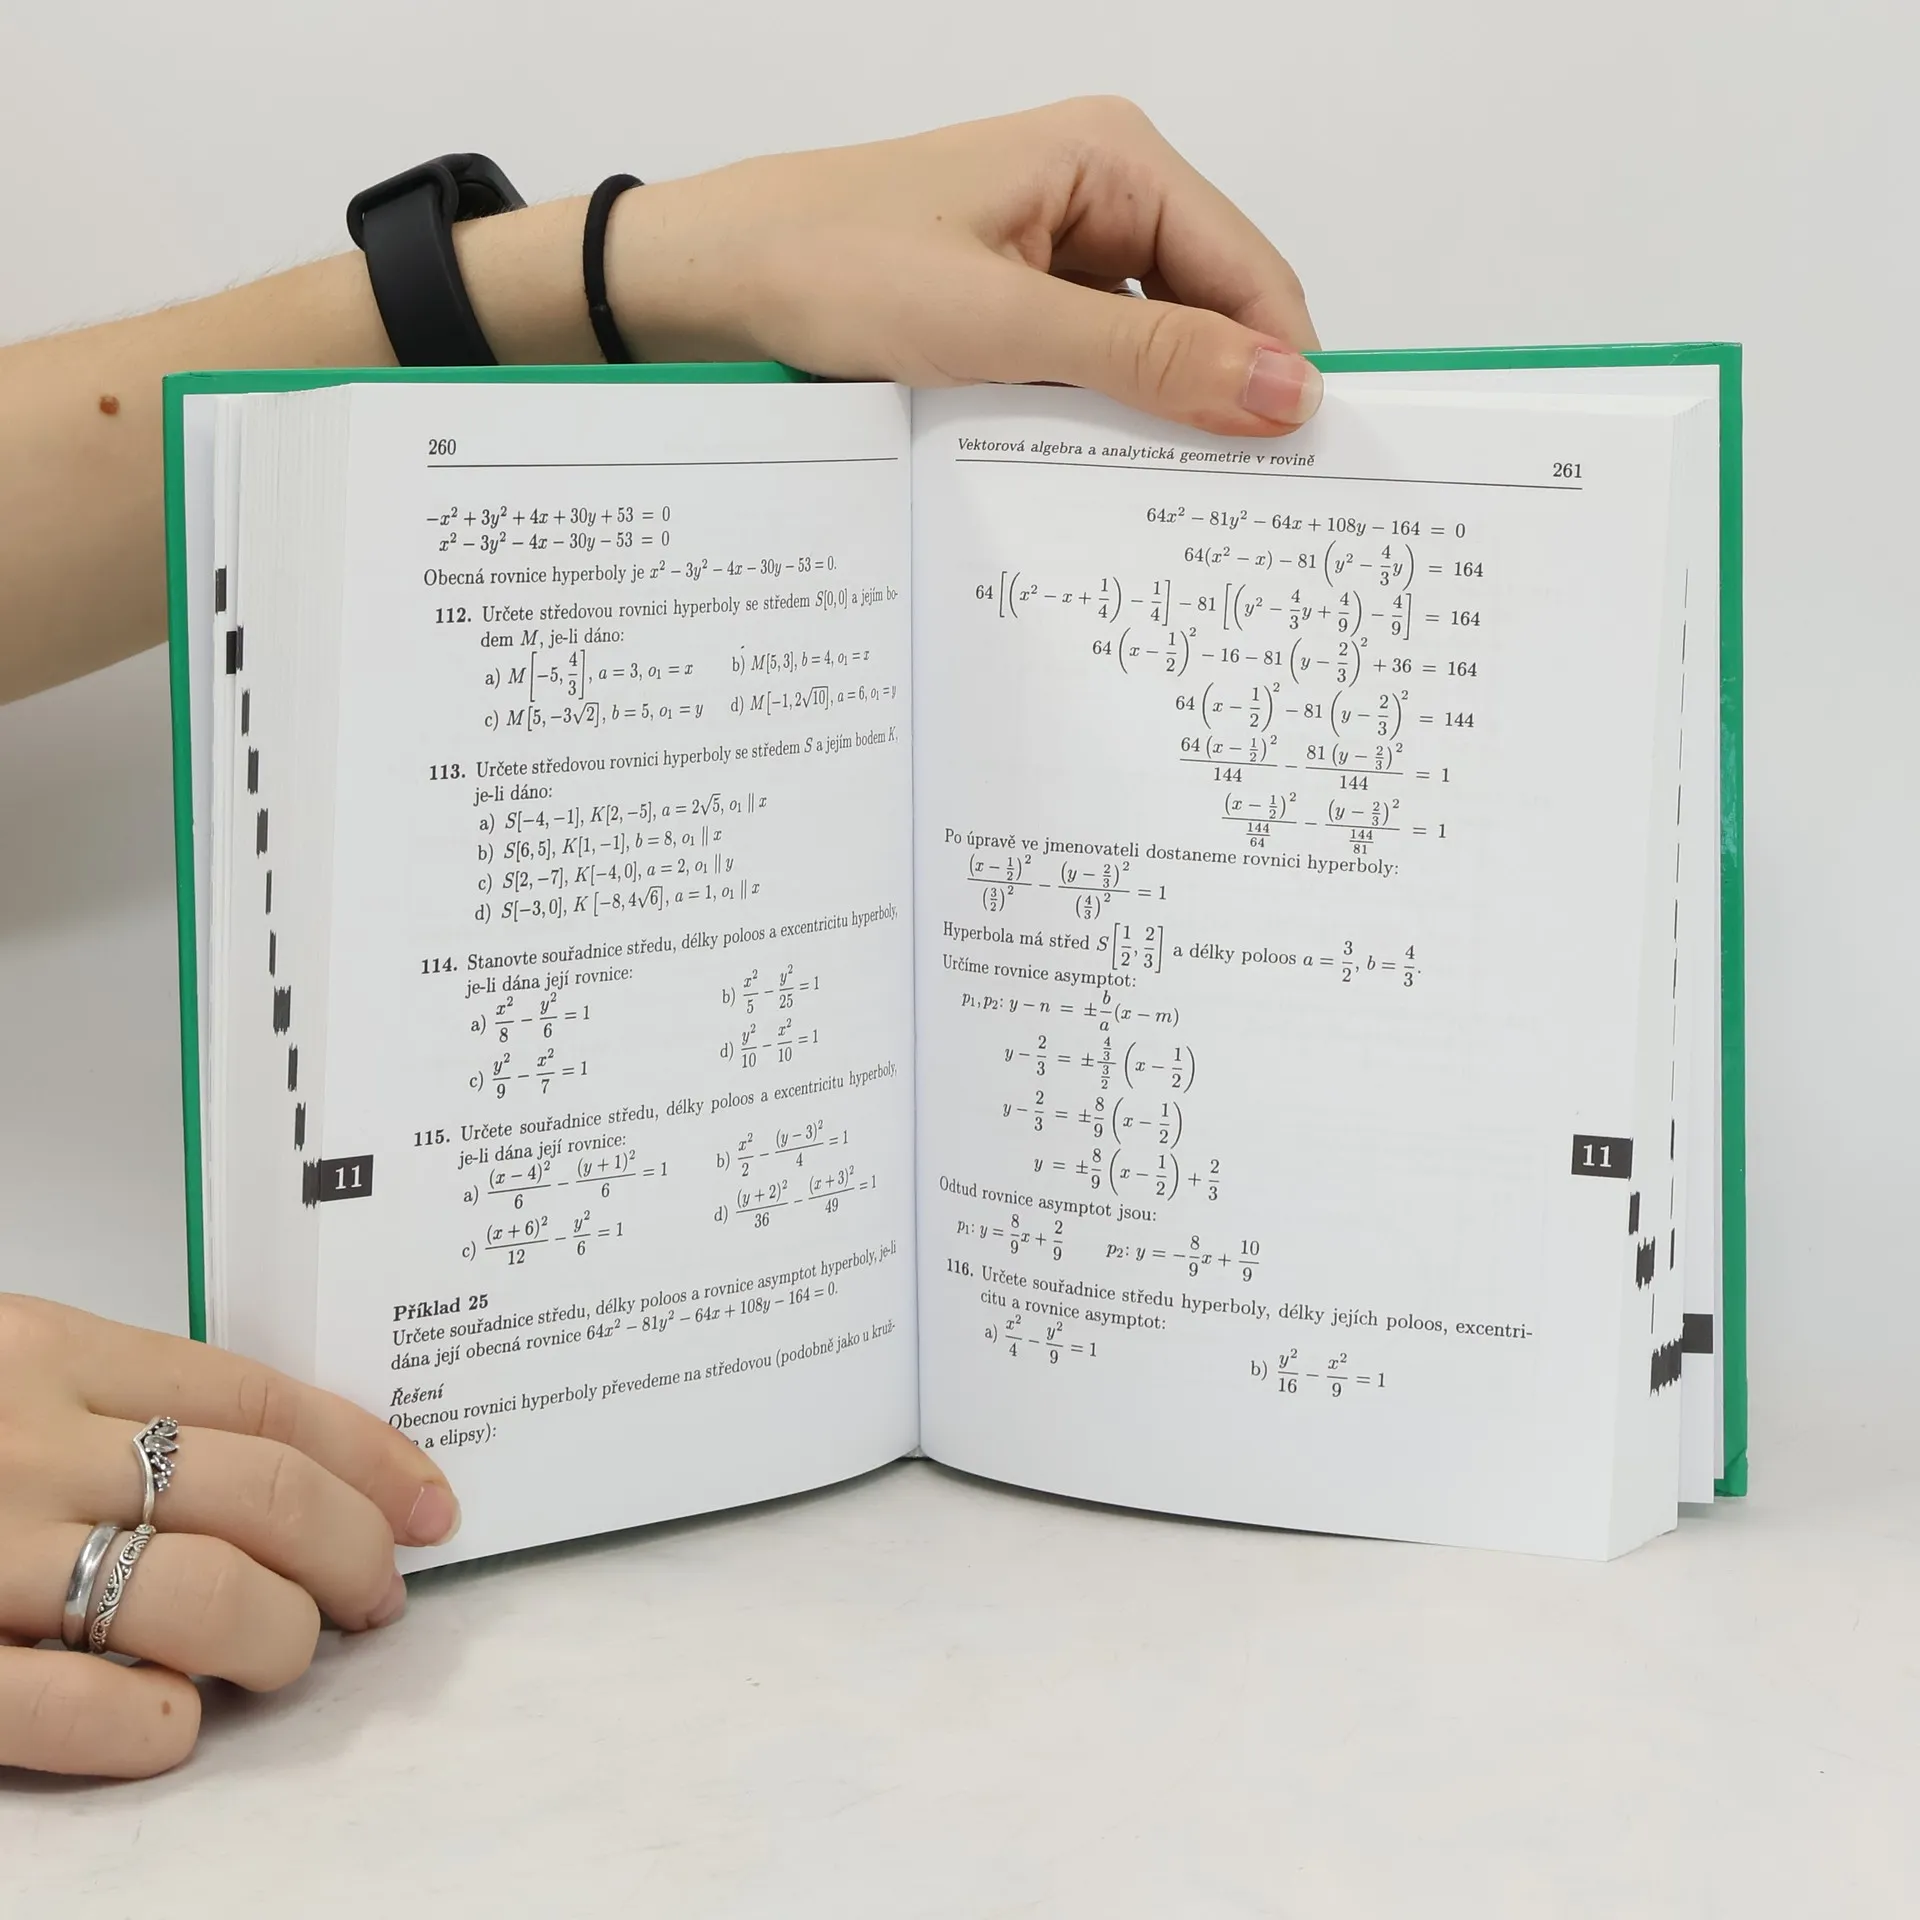 260
−x² + 3y² + 4x + 30y + 53 = 0
x² − 3y² − 4x − 30y − 53 = 0
Obecná rovnice hyperboly je x² − 3y² − 4x − 30y − 53 = 0.
112. Určete středovou rovnici hyperboly se středem S[0,0] a jejím bo-
dem M, je-li dáno:
a) M[−5, 4/3], a = 3, o₁ = x b) M[5,3], b = 4, o₁ = x
c) M[5, −3√2], b = 5, o₁ = y d) M[−1, 2√10], a = 6, o₁ = y
113. Určete středovou rovnici hyperboly se středem S a jejím bodem K,
je-li dáno:
a) S[−4, −1], K[2, −5], a = 2√5, o₁ ∥ x
b) S[6, 5], K[1, −1], b = 8, o₁ ∥ x
c) S[2, −7], K[−4, 0], a = 2, o₁ ∥ y
d) S[−3, 0], K [−8, 4√6], a = 1, o₁ ∥ x
114. Stanovte souřadnice středu, délky poloos a excentricitu hyperboly,
je-li dána její rovnice:
a) x²/8 − y²/6 = 1 b) x²/5 − y²/25 = 1
c) y²/9 − x²/7 = 1 d) y²/10 − x²/10 = 1
115. Určete souřadnice středu, délky poloos a excentricitu hyperboly,
je-li dána její rovnice:
a) (x − 4)²/6 − (y + 1)²/6 = 1 b) x²/2 − (y − 3)²/4 = 1
c) (x + 6)²/12 − y²/6 = 1 d) (y + 2)²/36 − (x + 3)²/49 = 1
11
Příklad 25
Určete souřadnice středu, délky poloos a rovnice asymptot hyperboly, je-li
dána její obecná rovnice 64x² − 81y² − 64x + 108y − 164 = 0.
Řešení
Obecnou rovnici hyperboly převedeme na středovou (podobně jako u kruž-
a elipsy):
Vektorová algebra a analytická geometrie v rovině 261
64x² − 81y² − 64x + 108y − 164 = 0
64(x² − x) − 81 (y² − 4/3 y) = 164
64 [(x² − x + 1/4) − 1/4] − 81 [(y² − 4/3 y + 4/9) − 4/9] = 164
64 (x − 1/2)² − 16 − 81 (y − 2/3)² + 36 = 164
64 (x − 1/2)² − 81 (y − 2/3)² = 144
64 (x − 1/2)²/144 − 81 (y − 2/3)²/144 = 1
(x − 1/2)²/(144/64) − (y − 2/3)²/(144/81) = 1
Po úpravě ve jmenovateli dostaneme rovnici hyperboly:
(x − 1/2)²/(3/2)² − (y − 2/3)²/(4/3)² = 1
Hyperbola má střed S[1/2, 2/3] a délky poloos a = 3/2, b = 4/3.
Určíme rovnice asymptot:
p₁, p₂: y − n = ± b/a (x − m)
y − 2/3 = ± (4/3)/(3/2) (x − 1/2)
y − 2/3 = ± 8/9 (x − 1/2)
y = ± 8/9 (x − 1/2) + 2/3
Odtud rovnice asymptot jsou:
p₁: y = 8/9 x + 2/9 p₂: y = − 8/9 x + 10/9
116. Určete souřadnice středu hyperboly, délky jejích poloos, excentri-
citu a rovnice asymptot:
a) x²/4 − y²/9 = 1 b) y²/16 − x²/9 = 1
11